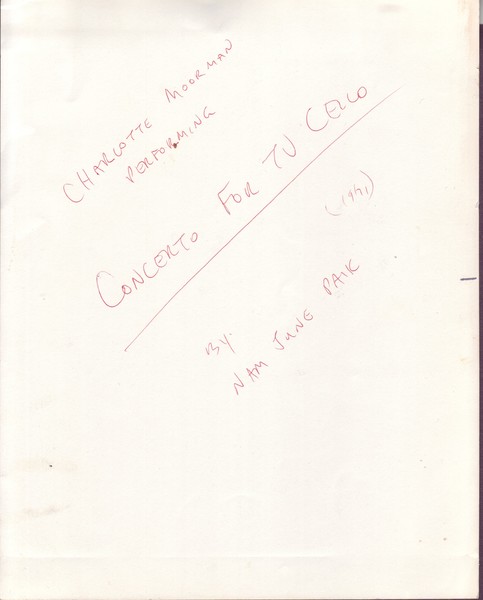 CHARLOTTE MOORMAN
PERFORMING
CONCERTO FOR TV CELLO
(1971)
BY
NAM JUNE PAIK